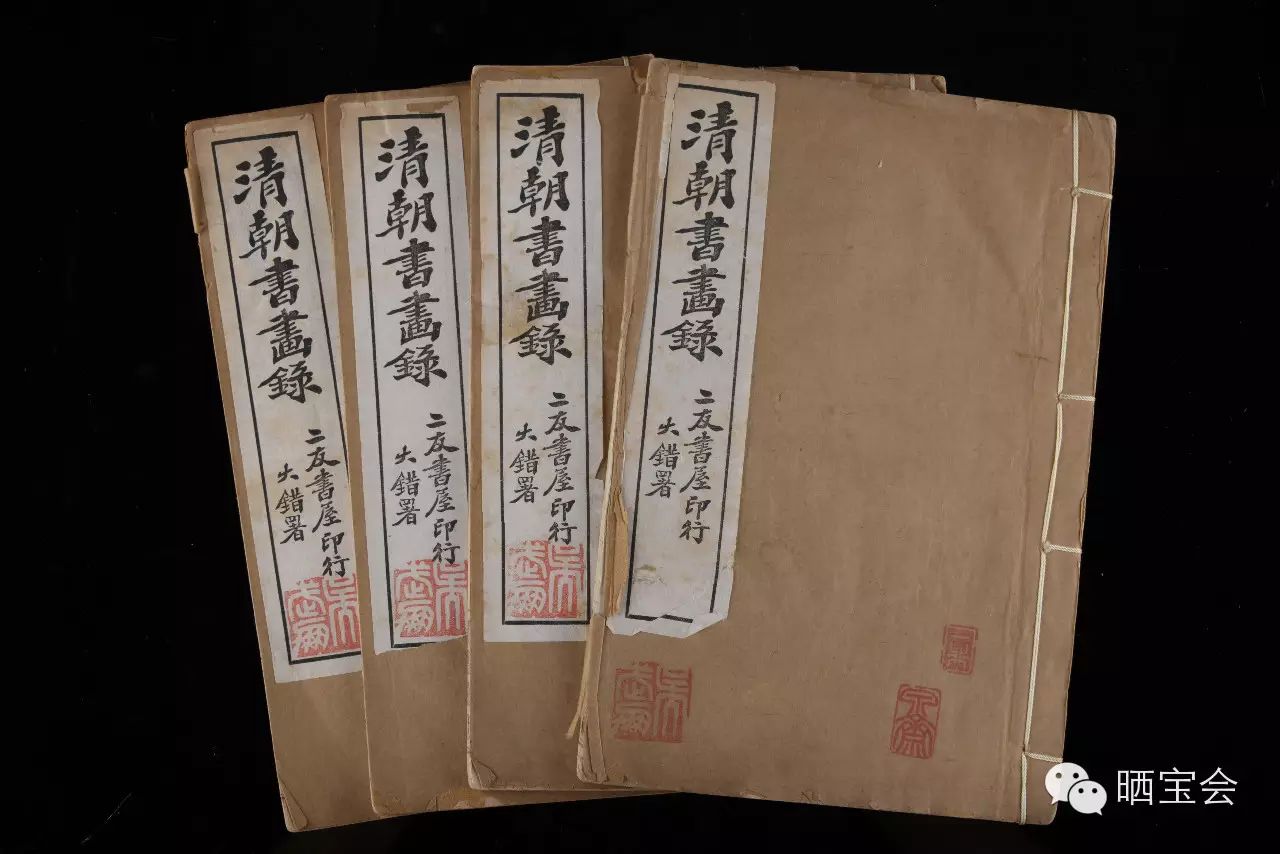 清朝書畫錄
二友書屋印行
大錯署
清朝書畫錄
二友書屋印行
大錯署
清朝書畫錄
二友書屋印行
大錯署
清朝書畫錄
二友書屋印行
大錯署
晒宝会